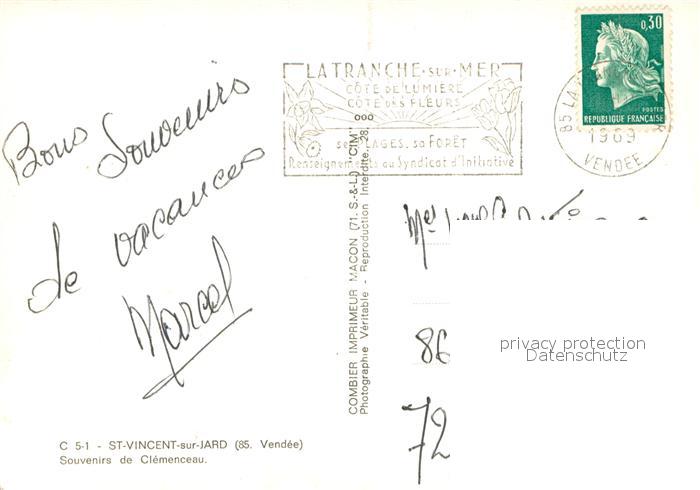 Bons Souvenirs
de vacances
Marcel
C 5-1 - ST-VINCENT-sur-JARD (85. Vendée)
Souvenirs de Clémenceau.
COMBIER IMPRIMEUR MACON (71. S.-&-L.) "CIM"
Photographie Véritable - Reproduction Interdite. 28.
LA TRANCHE-SUR-MER
CÔTE DE LUMIÈRE
CÔTE DES FLEURS
ses PLAGES, sa FORÊT
Renseignements au Syndicat d'Initiative
0,30
POSTES
REPUBLIQUE FRANÇAISE
85 LA
1969
VENDEE
86
72
privacy protection
Datenschutz